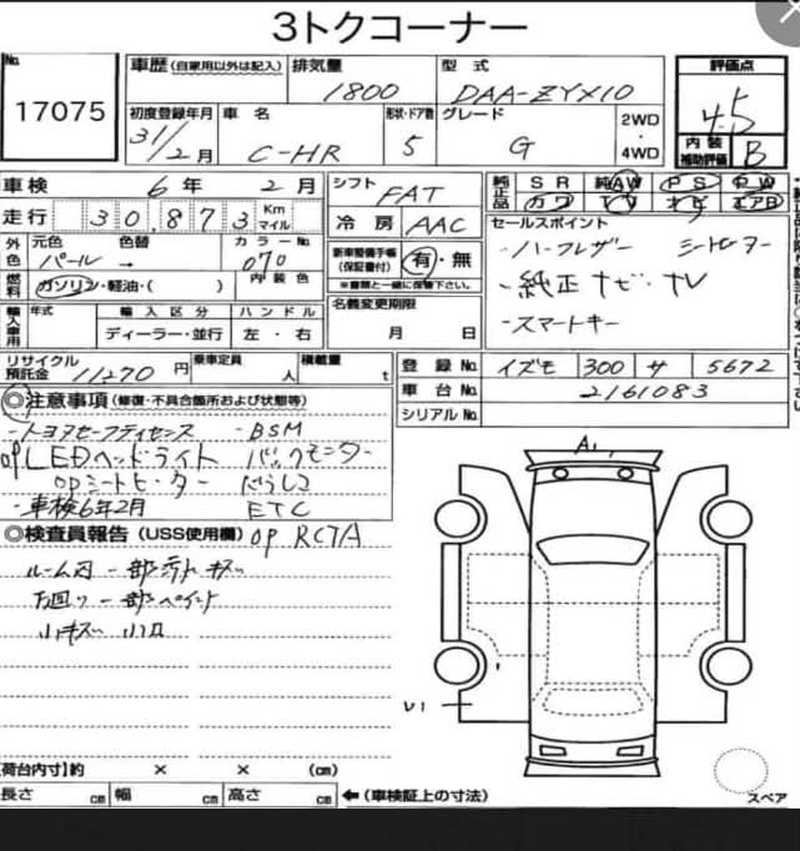 3トクコーナー
No.
17075
車歴 (自家用以外は記入) 排気量 型式 評価点
1800 DAA-ZYX10 4.5
初度登録年月 車名 形状・ドア数 グレード 2WD・4WD 内装補助評価
31/2月 C-HR 5 G B
車検 6年 2月 シフト FAT 純正品 SR 純AW PS PW
走行 30,873 Km マイル 冷房 AAC カワ TV ナビ エアB
外色 元色 色替 カラーNo. 新車整備手帳(保証書付) 有・無 セールスポイント
パール → 070 ※書類と一緒に保管下さい。 ・ハーフレザー シートヒーター
燃料 ガソリン・軽油・( ) 内装色 名義変更期限 ・純正ナビ・TV
輸入車用 年式 輸入区分 ハンドル 月 日 ・スマートキー
ディーラー・並行 左・右
リサイクル預託金 11270円 乗車定員 人 積載量 t 登録No. イズモ 300 サ 5672
車台No. 2161083
シリアルNo.
◎注意事項(修復・不具合箇所および状態等)
・トヨタセーフティセンス ・BSM
op LEDヘッドライト バックモニター
opシートヒーター
・車検6年2月 ETC
◎検査員報告(USS使用欄) op RCTA
ルーム内 一部汚れ キズ
下回り 一部ペイント
小キズ 小凹
A1
U1
【荷台内寸】約 × × (cm)
長さ cm 幅 cm 高さ cm ←(車検証上の寸法) スペア